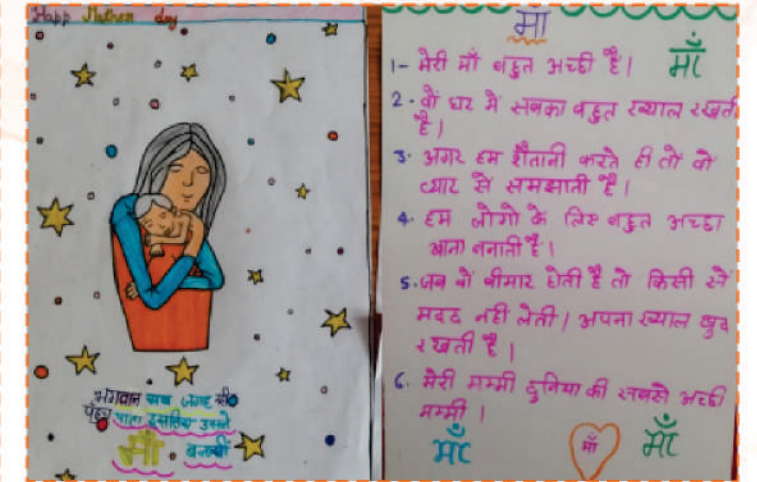 Happ Mathers day
भगवान सब जगह नही
पहुंच पाता इसलिए उसने
माँ बनायीं
माँ
माँ
1- मेरी माँ बहुत अच्छी है।
2. वों घर मे सबका बहुत ख्याल रखती
है।
3. अगर हम शैतानी करते ही तो वो
प्यार से समझाती है।
4. हम लोगो के लिए बहुत अच्छा
खाना बनाती है।
5. जब वों बीमार होती है तो किसी से
मदद नही लेती। अपना ख्याल खुद
रखती है।
6. मेरी मम्मी दुनिया की सबसे अच्छी
मम्मी।
माँ
माँ
माँ